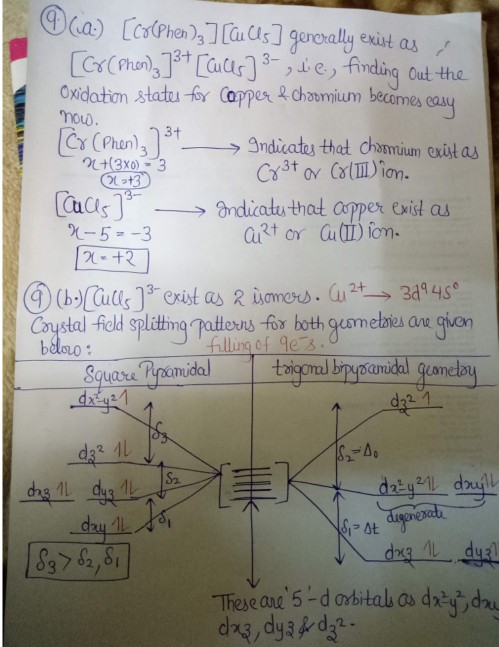 9.) (i.a.) [Cr(Phen)₃][CuCl₅] generally exist as
[Cr(Phen)₃]³⁺ [CuCl₅]³⁻, i.e., finding out the
Oxidation states for Copper & chromium becomes easy
now.
[Cr(Phen)₃]³⁺ → Indicates that chromium exist as
x+(3×0) = 3
Cr³⁺ or Cr(III) ion.
x=+3
[CuCl₅]³⁻ → Indicates that copper exist as
x-5 = -3
Cu²⁺ or Cu(II) ion.
x=+2
9) (b.) [CuCl₅]³⁻ exist as 2 isomers. Cu²⁺ → 3d⁹4S⁰
Crystal field splitting patterns for both geometries are given
below: filling of 9e⁻s.
Square Pyramidal
trigonal bipyramidal geometry
dx²-y² 1
dz² 1
δ₃
dz² 1L
δ₂=Δ₀
dxz 1L dyz 1L
δ₂
dx²-y² 1L dxy 1L
dxy 1L
δ₁
degenerate
δ₁=Δt
δ₃ > δ₂, δ₁
dxz 1L dyz 1L
These are '5'-d orbitals as dx²-y², dxy
dxz, dyz & dz².